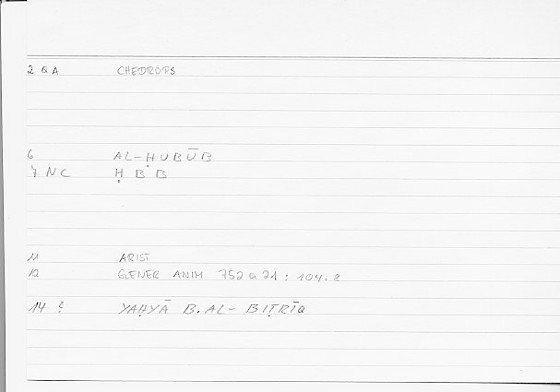 2 Q A CHEDROPS
6 AL-ḤUBŪB
7 NC ḤBB
11 ARIST
12 GENER ANIM 752 a 21 : 104.2
14 YAḤYĀ B. AL-BIṬRĪQ